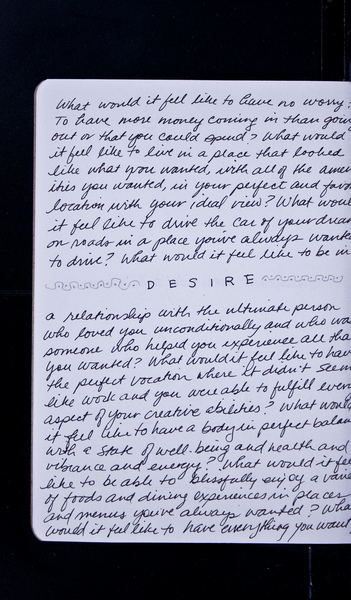 What would it fell like to have no worry?
To have more money coming in than goin
out or that you could spend? What would
it feel like to live in a place that looked
like what you wanted, with all of the amen
ities you wanted, in your perfect and favo
location with your ideal view? What woul
it feel like to drive the car of your dream
on roads in a place you've always wante
to drive? What would it feel like to be in
DESIRE
a relationship with the ultimate person
who loved you unconditionally and who wa
someone who helped you experience all tha
you wanted? What would it feel like to have
the perfect vocation where it didn't seem
like work and you were able to fulfill ever
aspect of your creative abilities? What would
it feel like to have a body in perfect balan
with a state of well-being and health and
vibrance and energy? What would it fee
like to be able to blissfully enjoy a varie
of foods and dining experiences in places
and menus you've always wanted? Wha
would it feel like to have everything you want